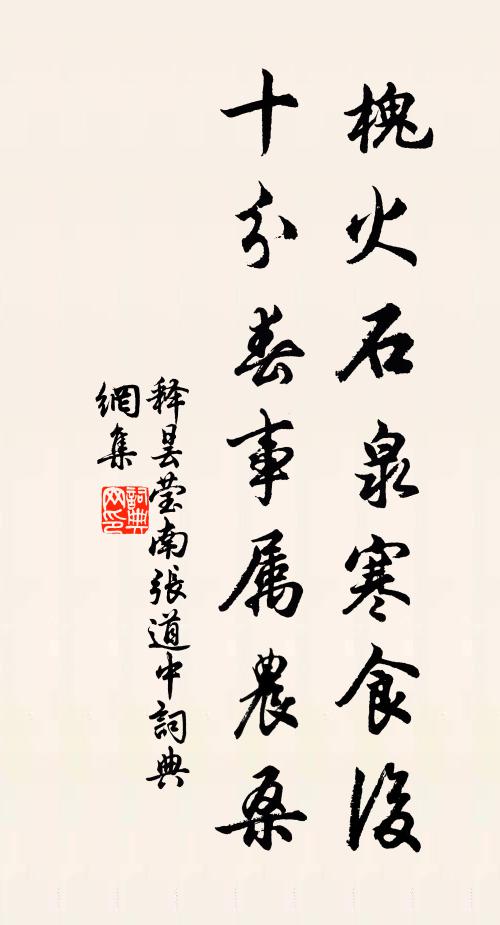 槐火石泉寒食後
十分春事属農桑
释昙莹南張道中詞典
網集
詞典
网印